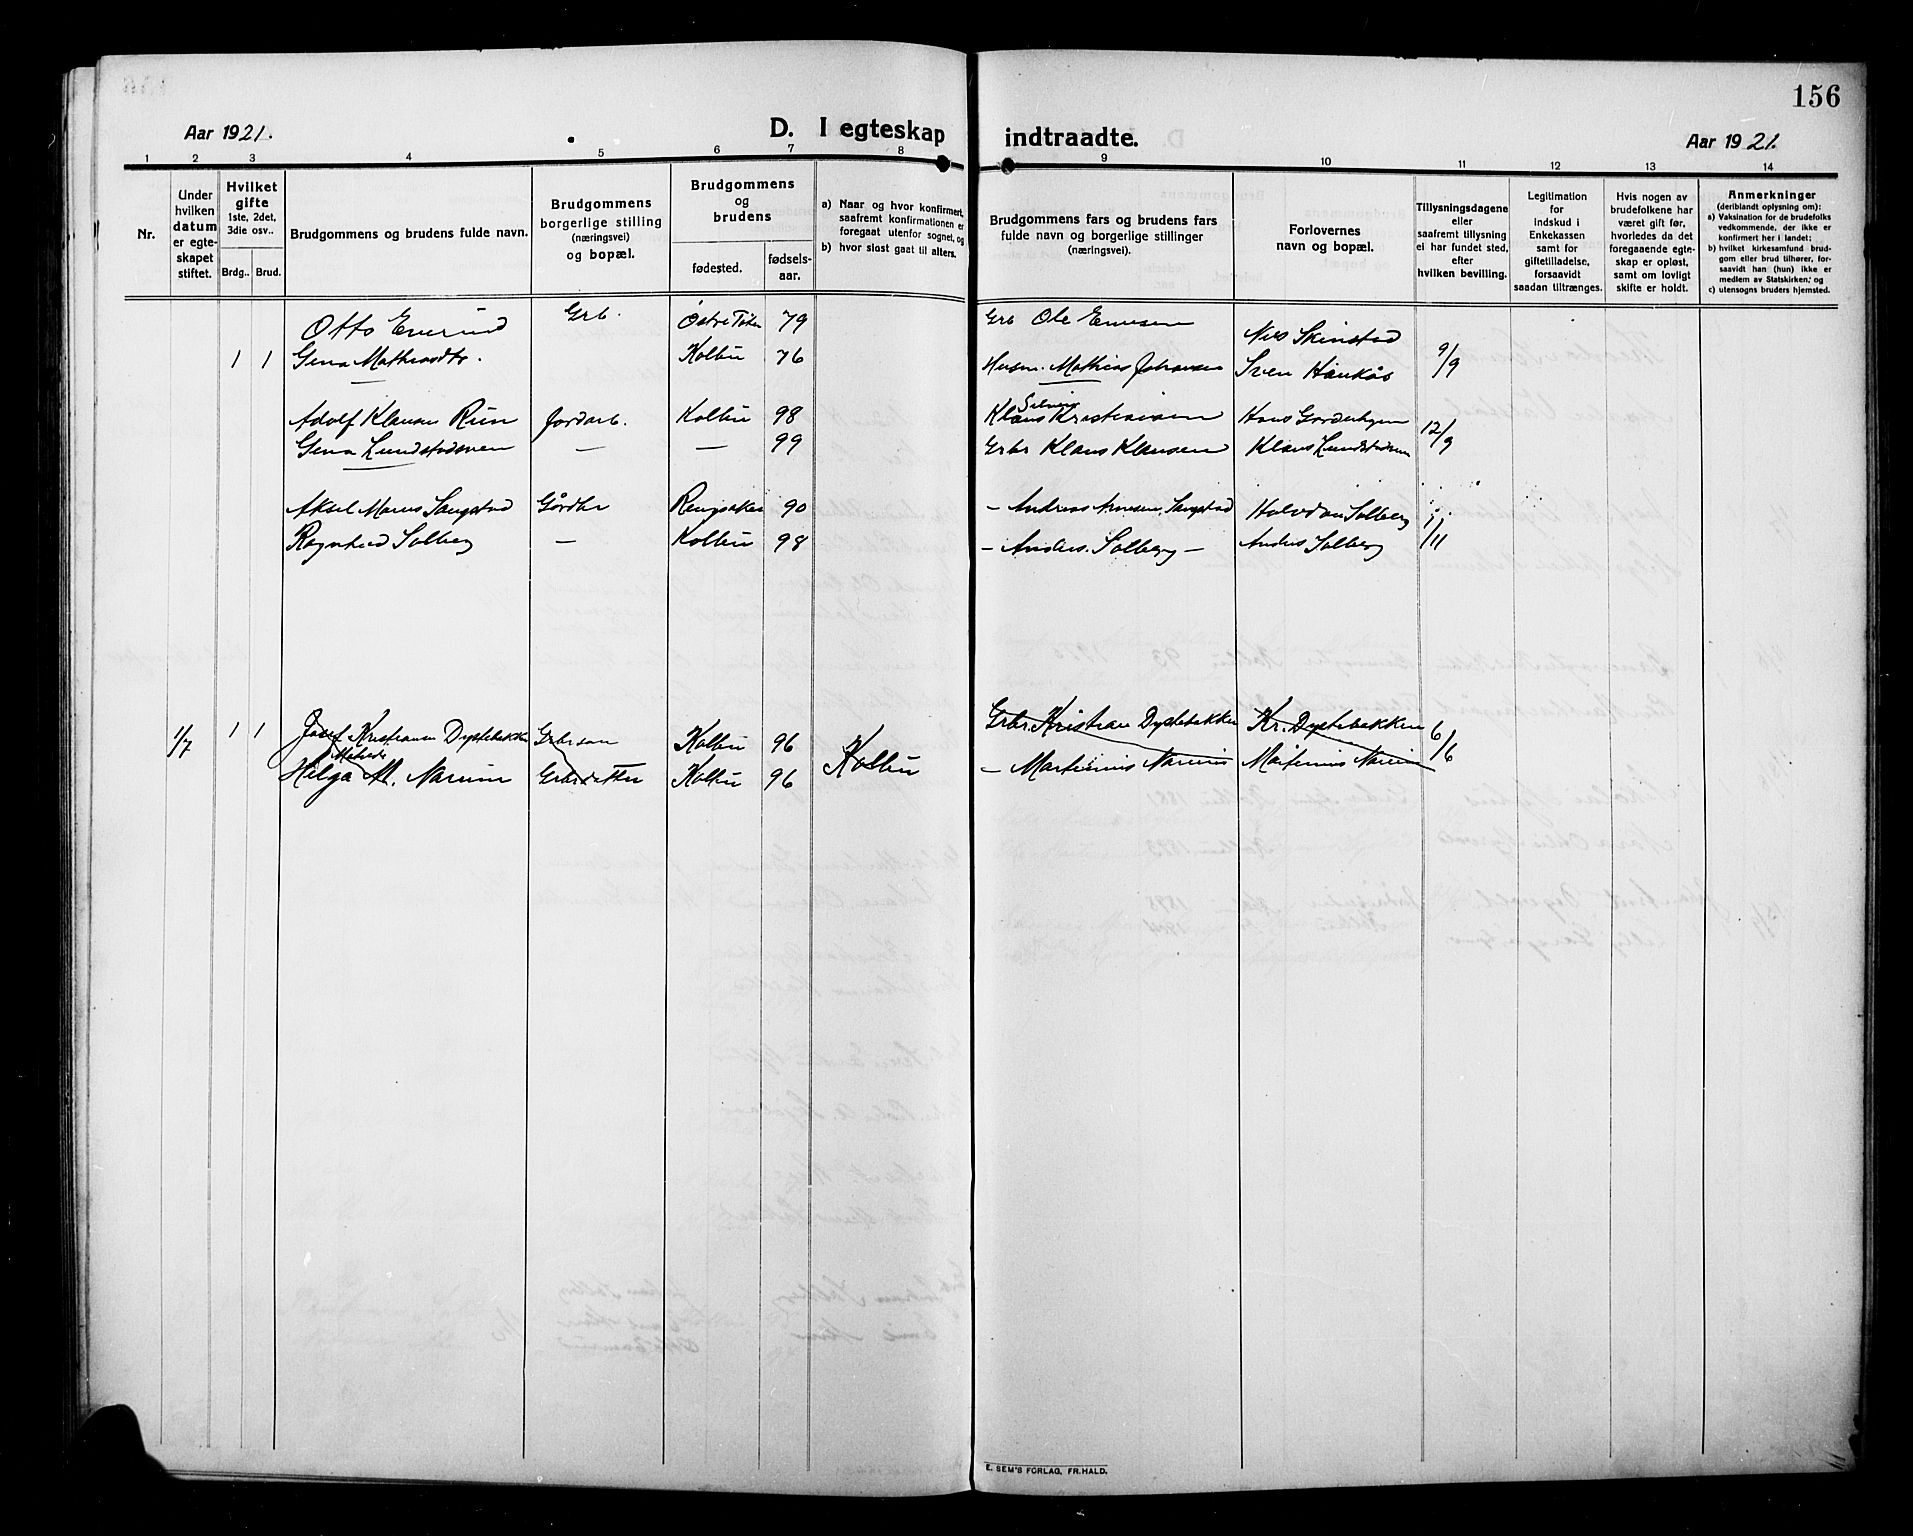 156
Aar 1921.
D. I egteskap indtraadte.
Aar 1921.
1 2 3 4 5 6 7 8 9 10 11 12 13 14
Nr.
Under hvilken datum er egte- skapet stiftet.
Hvilket gifte
1ste, 2det, 3die osv..
Brdg.. Brud.
Brudgommens og brudens fulde navn.
Brudgommens borgerlige stilling (næringsvei) og bopæl.
Brudgommens og brudens
fødested.
fødsels- aar.
a) Naar og hvor konfirmert, saafremt konfirmationen er foregaat utenfor sognet, og
b) hvor sidst gaat til alters.
Brudgommens fars og brudens fars fulde navn og borgerlige stillinger (næringsvei).
Forlovernes navn og bopæl.
Tillysningsdagene eller saafremt tillysning ei har fundet sted, efter hvilken bevilling.
Legitimation for indskud i Enkekassen samt for giftetilladelse, forsaavidt saadan tiltrænges.
Hvis nogen av brudefolkene har været gift før, hvorledes da det foregaaende egte- skap er opløst, samt om lovligt skifte er holdt.
Anmerkninger
(deriblandt oplysning om):
a) Vaksination for de brudefolks vedkommende, der ikke er konfirmert her i landet;
b) hvilket kirkesamfund brud- gom eller brud tilhører, for- saavidt han (hun) ikke er medlem av Statskirken; og
c) utensogns bruders hjemsted.
Otto Enerud Grb. Østre Toten 79 Grb Ole Nils Skinstad
1 1 Gina Mathiasdtr. Kolbu 76 Husm. Mathias Johansen Sven 9/9
Adolf Klausen Jordarb. Kolbu 98 Klaus Kristiansen Hans
Gina Lundstadsveen — — 99 Grbr Klaus Klausen Klaus Lundstadsveen 12/9
Aksel Marius Sangstad Gårdbr 90 — Andreas Sangstad Halvdan Solberg
Ragnhild Solberg — Kolbu 98 — Anders Solberg — Anders Solberg 1/11
1/7 1 1 Josef Kristiansen Dystebakken Grbrsøn Kolbu 96 Grbr. Kristian Dystebakken Kr. Dystebakken
Helga M. Narum Grbrdatter Kolbu 96 Kolbu — Martinius Narum Martinius Narum 6/6
E. SEM'S FORLAG, FR.HALD.